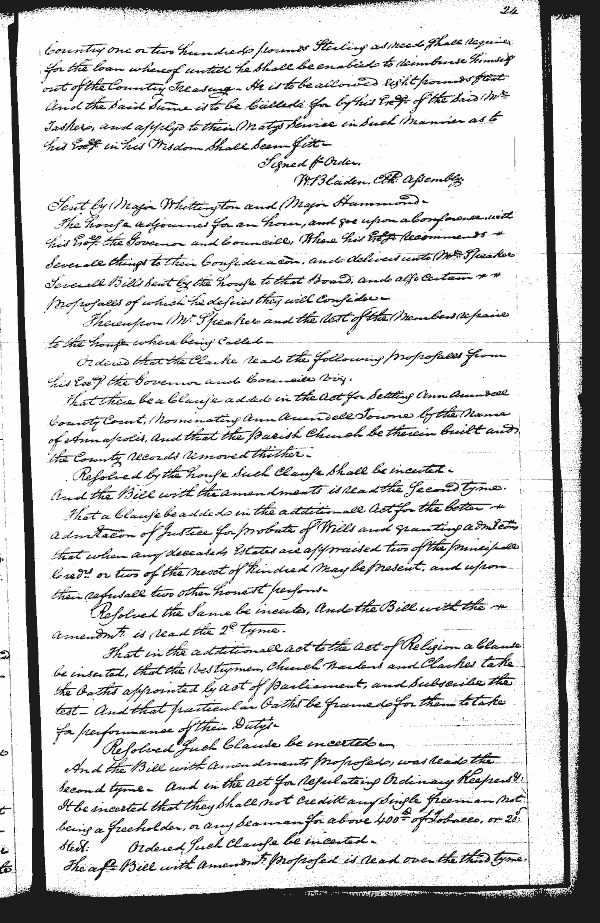 24
Country one or two hundred pounds Sterling as need Shall require
for the loan whereof untill he Shall be enabled to reimburse himself
out of the Country Treasury. He is to be allowed Eight pounds 
And the Said Sume is to be Called for by his Exy. of the Said Mr.
Taskers, and apply'd to their Matys Service in Such Manner as to
his Exy. in his Wisdom Shall Seem fitt-
Signed p Order.
W Bladen. Clk. Assembly
Sent by Major Whittington and Major Hammond-
The house adjournes for an hour, and goe upon a Conference with
his Exy. the Governor and Councill, Where his Exy. recommends
Severall things to their Consideracon, and delivers unto Mr. Speaker
Severall Bills Sent by the house to that Board, and also Certain
Proposalls of which he desires they will Consider-
Thereupon Mr. Speaker and the rest of the Members repaire
to the house where being Called-
Ordered that the Clarke read the following proposalls from
his Exy. the Governor and Councill Viz.
That there be a Clause added in the Act for Settling Ann Arundell
County Court, Nominating Ann Arundell Towne by the Name
of Annapolis, And that the Parish Church be therein built and
the County records removed thither-
Resolved by the house Such Clause Shall be incerted-
And the Bill with the amendments is read the Second tyme.
That a Clause be added in the additionall Act for the better
admtacon of Justice for probate of Wills and granting admtcons
that when any deceased Estates are appraised two of the principall
Credrs. or two of the next of Kindred May be present, and upon
their refusall two other honest persons-
Resolved the Same be incerted, And the Bill with the
amendmts. is read the 2d. tyme.
That in the additionall Act to the Act of Religion a Clause
be inserted, that the Vestrymen, Church Wardens and Clarkes take
the Oaths appointed by Act of Parliament, and Subscribe the
test- And that particular Oaths be framed for them to take
for performance of their Dutys-
Resolved Such Clause be incerted-
And the Bill with Amendments Proposed, was read the
Second tyme- And in the Act for regulating Ordinary Keepers &c.
It be incerted that they Shall not Creditt any Single freeman not
being a freeholder, or any Seaman for above 400 lb. of Tobacco, or 20s.
Sterl: Ordered Such Clause be incerted-
The afd. Bill with amendmts. Proposed is read over the third tyme